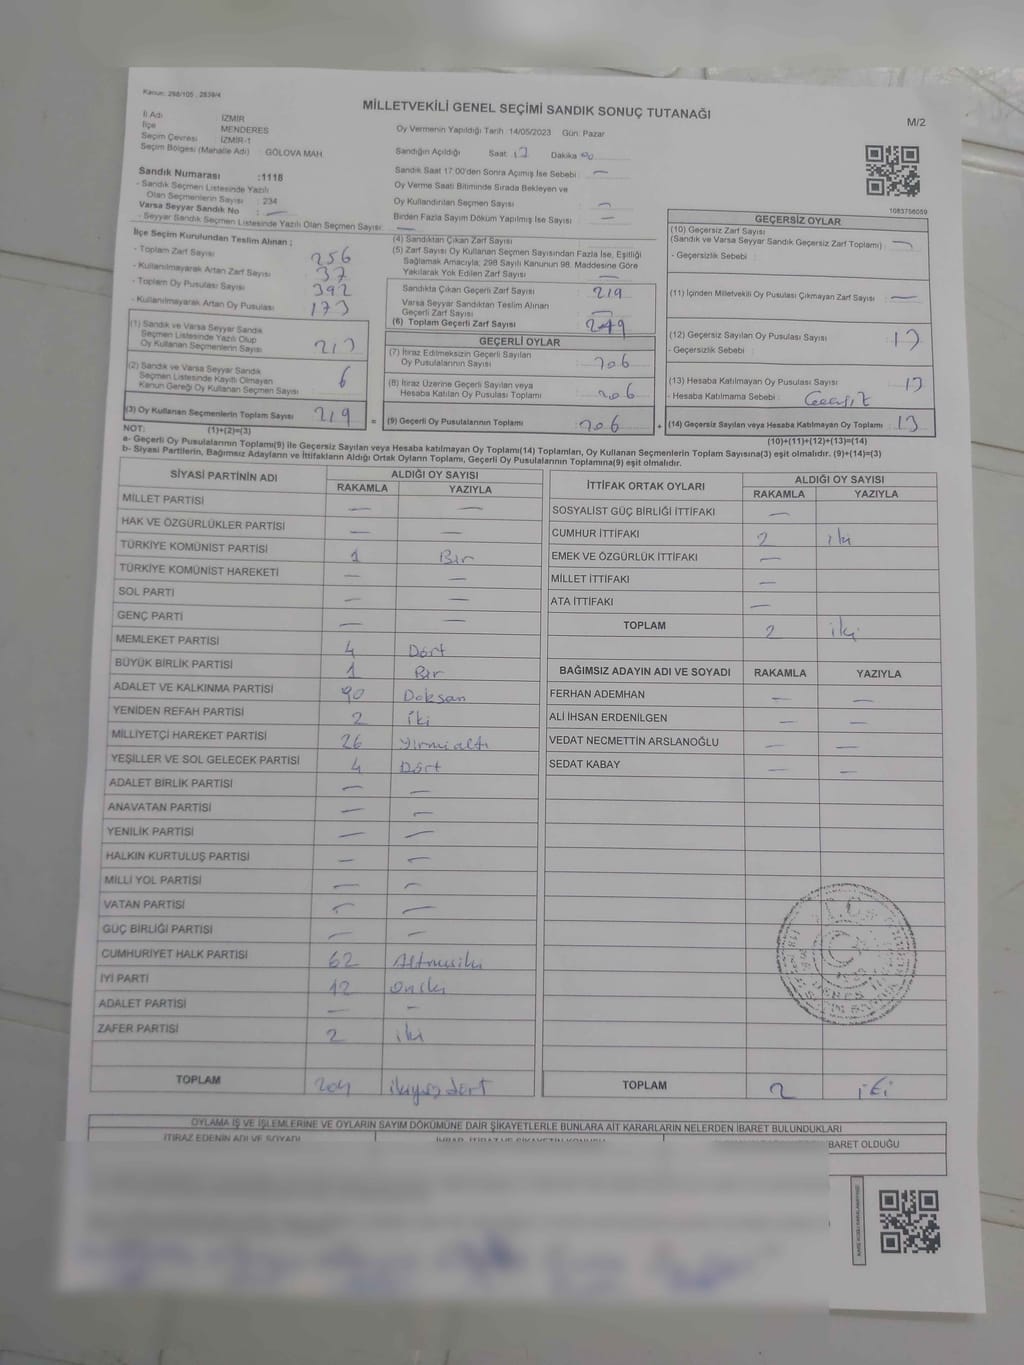 Kanun: 298/105 , 2839/4
MİLLETVEKİLİ GENEL SEÇİMİ SANDIK SONUÇ TUTANAĞI
M/2
İl Adı İZMİR
İlçe MENDERES
Seçim Çevresi İZMİR-1
Seçim Bölgesi (Mahalle Adı) : GÖLOVA MAH.
Oy Vermenin Yapıldığı Tarih :14/05/2023 Gün: Pazar
Sandığın Açıldığı Saat: 17 Dakika 00
Sandık Saat 17:00'den Sonra Açımış İse Sebebi : —
Oy Verme Saati Bitiminde Sırada Bekleyen ve
Oy Kullandırılan Seçmen Sayısı : —
Birden Fazla Sayım Döküm Yapılmış İse Sayısı : —
Sandık Numarası :1118
- Sandık Seçmen Listesinde Yazılı
Olan Seçmenlerin Sayısı : 234
Varsa Seyyar Sandık No : —
- Seyyar Sandık Seçmen Listesinde Yazılı Olan Seçmen Sayısı : —
İlçe Seçim Kurulundan Teslim Alınan ;
- Toplam Zarf Sayısı 256
- Kullanılmayarak Artan Zarf Sayısı 37
- Toplam Oy Pusulası Sayısı 392
- Kullanılmayarak Artan Oy Pusulası 173
(1) Sandık ve Varsa Seyyar Sandık
Seçmen Listesinde Yazılı Olup
Oy Kullanan Seçmenlerin Sayısı : 213
(2) Sandık ve Varsa Seyyar Sandık
Seçmen Listesinde Kayıtlı Olmayan
Kanun Gereği Oy Kullanan Seçmen Sayısı : 6
(3) Oy Kullanan Seçmenlerin Toplam Sayısı 219 =
(1)+(2)=(3)
(4) Sandıktan Çıkan Zarf Sayısı
(5) Zarf Sayısı Oy Kullanan Seçmen Sayısından Fazla İse, Eşitliği
Sağlamak Amacıyla; 298 Sayılı Kanunun 98. Maddesine Göre
Yakılarak Yok Edilen Zarf Sayısı : —
Sandıkta Çıkan Geçerli Zarf Sayısı : 219
Varsa Seyyar Sandıktan Teslim Alınan
Geçerli Zarf Sayısı : —
(6) Toplam Geçerli Zarf Sayısı : 219
GEÇERLİ OYLAR
(7) İtiraz Edilmeksizin Geçerli Sayılan
Oy Pusulalarının Sayısı : 206
(8) İtiraz Üzerine Geçerli Sayılan veya
Hesaba Katılan Oy Pusulası Toplamı : 206
(9) Geçerli Oy Pusulalarının Toplamı : 206 +
1083756059
GEÇERSİZ OYLAR
(10) Geçersiz Zarf Sayısı
(Sandık ve Varsa Seyyar Sandık Geçersiz Zarf Toplamı) : —
- Geçersizlik Sebebi :
(11) İçinden Milletvekili Oy Pusulası Çıkmayan Zarf Sayısı : —
(12) Geçersiz Sayılan Oy Pusulası Sayısı : 13
- Geçersizlik Sebebi :
(13) Hesaba Katılmayan Oy Pusulası Sayısı : 13
- Hesaba Katılmama Sebebi : Geçersiz
(14) Geçersiz Sayılan veya Hesaba Katılmayan Oy Toplamı : 13
(10)+(11)+(12)+(13)=(14)
NOT:
a- Geçerli Oy Pusulalarının Toplamı(9) ile Geçersiz Sayılan veya Hesaba katılmayan Oy Toplamı(14) Toplamları, Oy Kullanan Seçmenlerin Toplam Sayısına(3) eşit olmalıdır. (9)+(14)=(3)
b- Siyasi Partilerin, Bağımsız Adayların ve İttifakların Aldığı Ortak Oyların Toplamı, Geçerli Oy Pusulalarının Toplamına(9) eşit olmalıdır.
SİYASİ PARTİNİN ADI ALDIĞI OY SAYISI
RAKAMLA YAZIYLA
MİLLET PARTİSİ — —
HAK VE ÖZGÜRLÜKLER PARTİSİ — —
TÜRKİYE KOMÜNİST PARTİSİ 1 Bir
TÜRKİYE KOMÜNİST HAREKETİ — —
SOL PARTİ — —
GENÇ PARTİ — —
MEMLEKET PARTİSİ 4 Dört
BÜYÜK BİRLİK PARTİSİ 1 Bir
ADALET VE KALKINMA PARTİSİ 90 Doksan
YENİDEN REFAH PARTİSİ 2 iki
MİLLİYETÇİ HAREKET PARTİSİ 26 yirmialtı
YEŞİLLER VE SOL GELECEK PARTİSİ 4 Dört
ADALET BİRLİK PARTİSİ — —
ANAVATAN PARTİSİ — —
YENİLİK PARTİSİ — —
HALKIN KURTULUŞ PARTİSİ — —
MİLLİ YOL PARTİSİ — —
VATAN PARTİSİ — —
GÜÇ BİRLİĞİ PARTİSİ — —
CUMHURİYET HALK PARTİSİ 62 Altmışiki
İYİ PARTİ 12 oniki
ADALET PARTİSİ — —
ZAFER PARTİSİ 2 iki
TOPLAM 204 ikiyüzdört
İTTİFAK ORTAK OYLARI ALDIĞI OY SAYISI
RAKAMLA YAZIYLA
SOSYALİST GÜÇ BİRLİĞİ İTTİFAKI —
CUMHUR İTTİFAKI 2 iki
EMEK VE ÖZGÜRLÜK İTTİFAKI —
MİLLET İTTİFAKI —
ATA İTTİFAKI —
TOPLAM 2 iki
BAĞIMSIZ ADAYIN ADI VE SOYADI RAKAMLA YAZIYLA
FERHAN ADEMHAN — —
ALİ İHSAN ERDENİLGEN — —
VEDAT NECMETTİN ARSLANOĞLU — —
SEDAT KABAY — —
TOPLAM 2 iki
OYLAMA İŞ VE İŞLEMLERİNE VE OYLARIN SAYIM DÖKÜMÜNE DAİR ŞİKAYETLERLE BUNLARA AİT KARARLARIN NELERDEN İBARET BULUNDUKLARI
İTİRAZ EDENİN ADI VE SOYADI
İBARET OLDUĞU